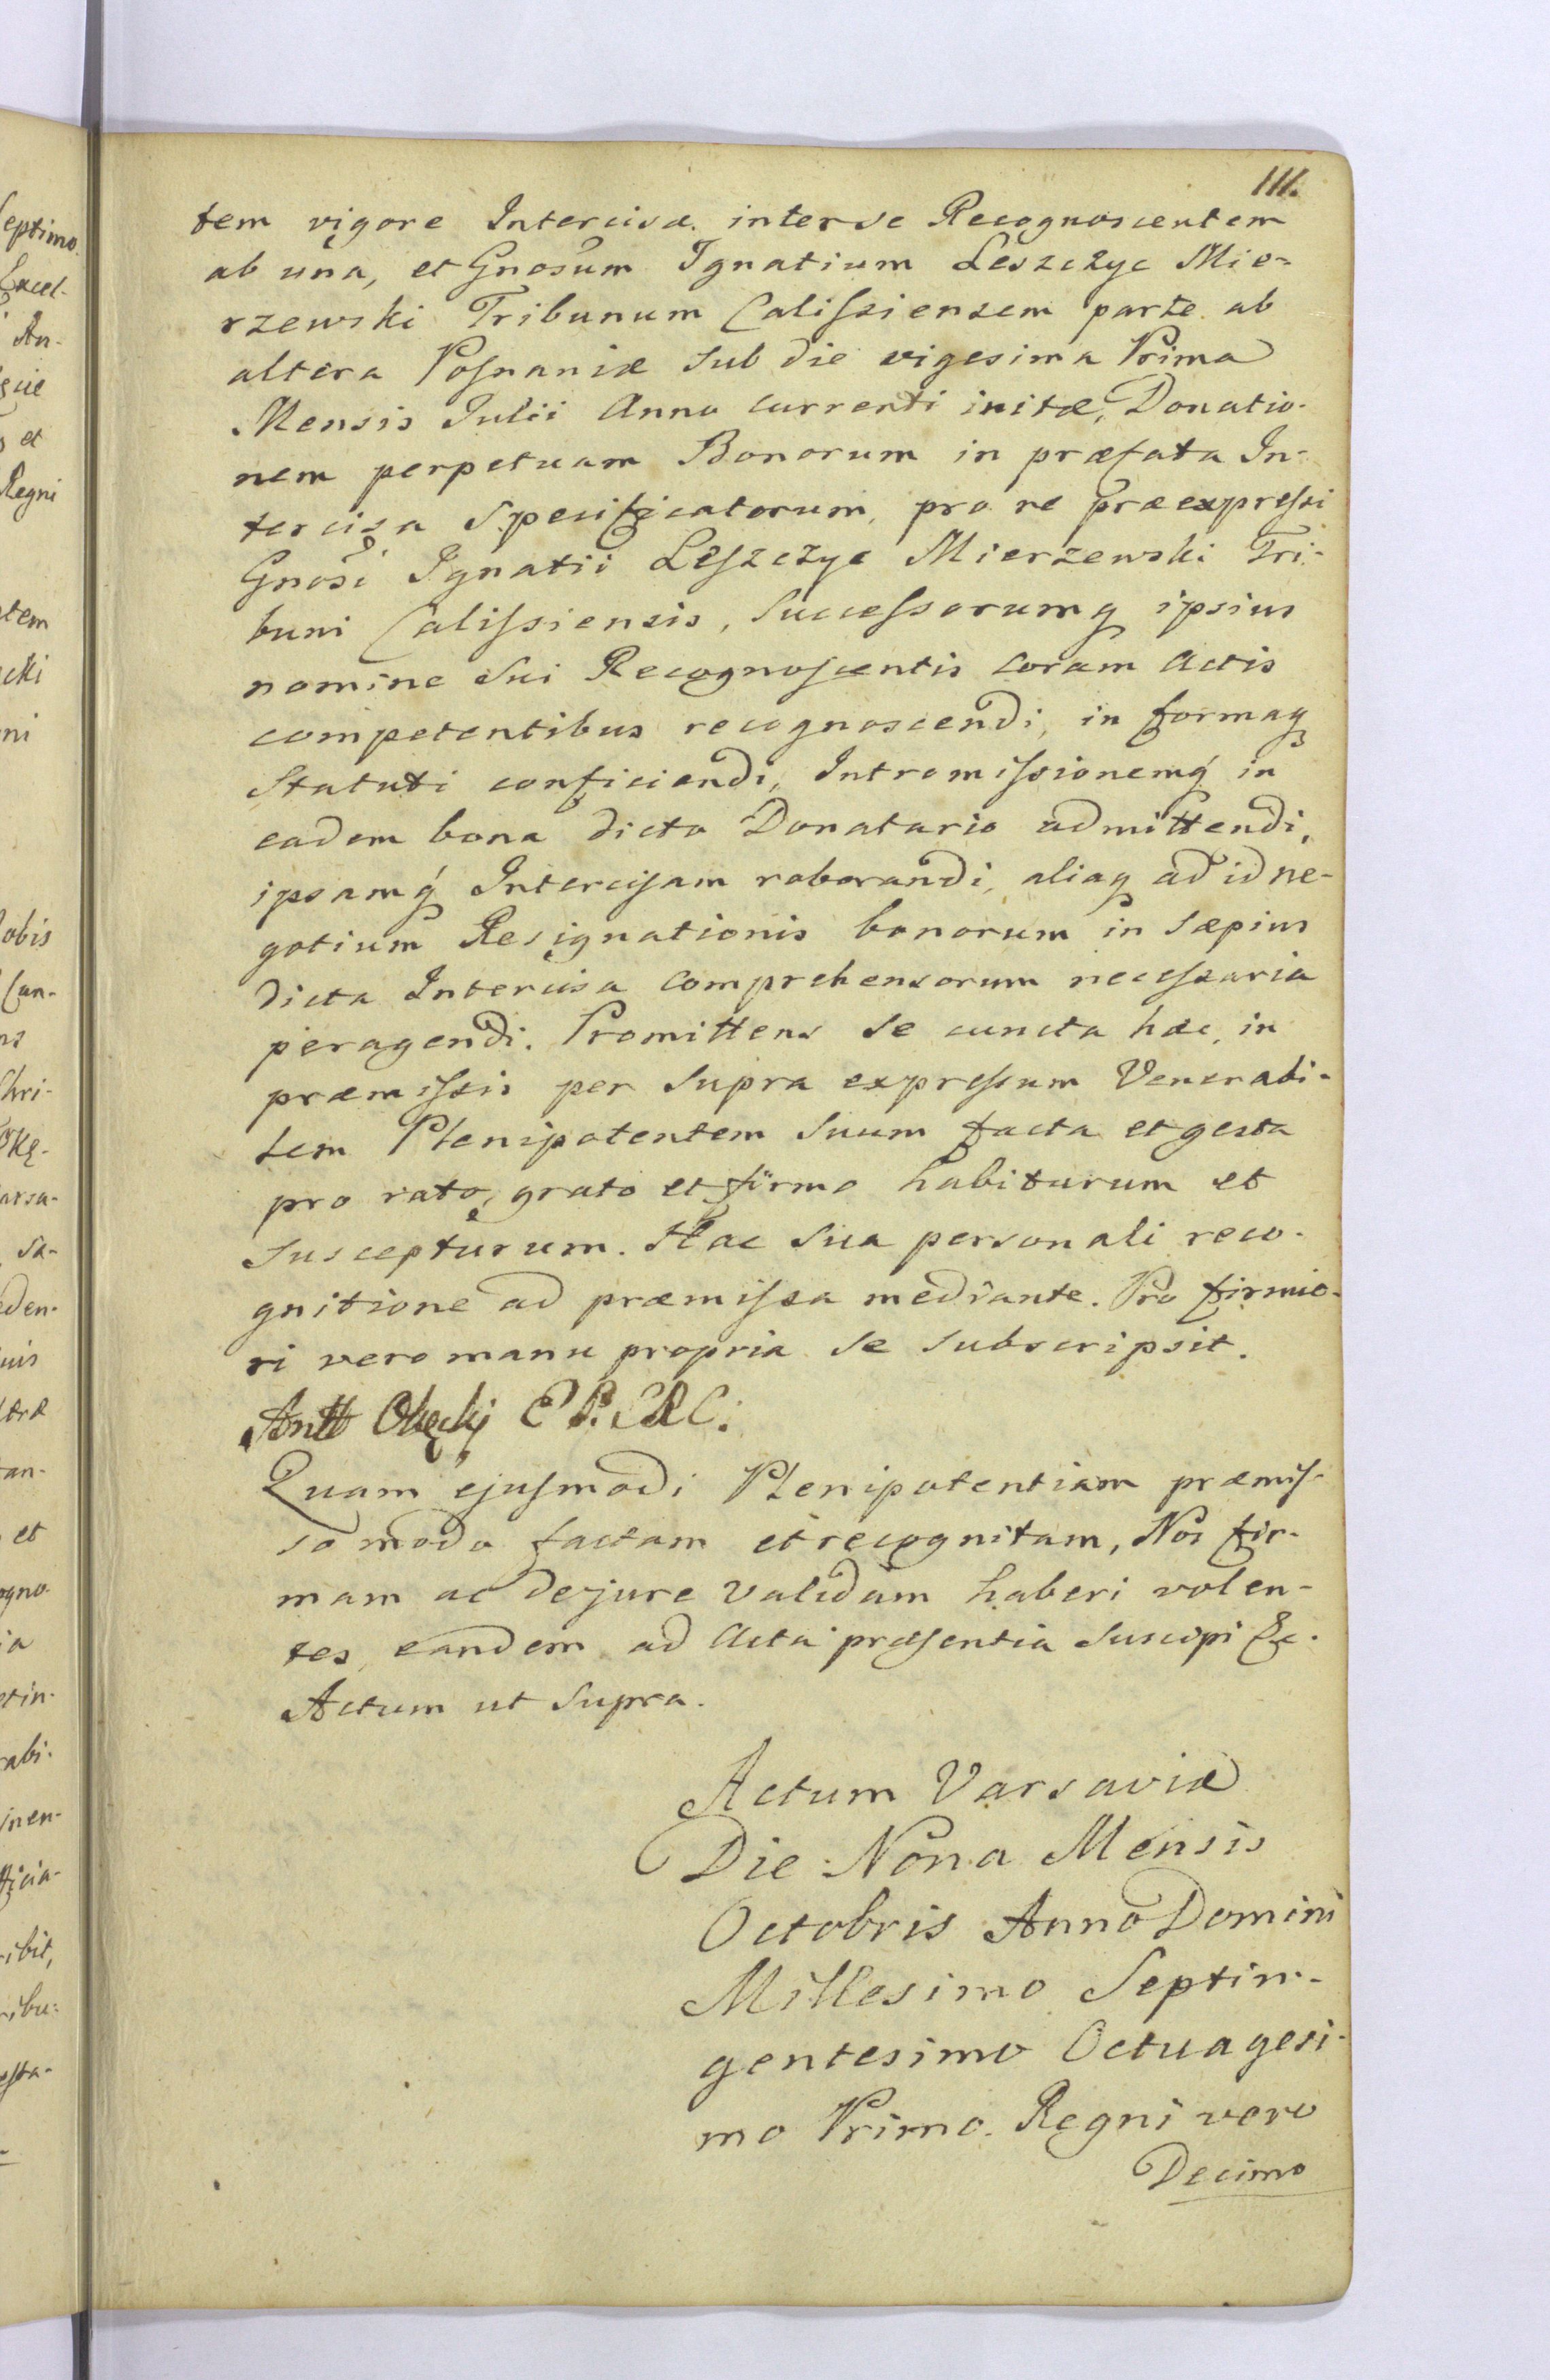 111.
tem vigore Intercisæ inter se Recognoscentem
ab una, et Gnosum Ignatium Leszczyc Mie-
rzewski Tribunum Calissiensem parte ab
altera Posnaniæ sub die vigesima Prima
Mensis Julii Anno currenti initæ, Donatio-
nem perpetuam Bonorum in præfata In-
tercisa specificatorum, pro re præexpressi
Gnosi Ignatii Leszczyc Mierzewski Tri-
buni Calissiensis, Successorumq ipsius
nomine sui Recognoscentis coram Actis
competentibus recognoscendi, in formaq
Statuti conficiendi, Intromissionemq in
eadem bona dicto Donatario admittendi,
ipsamq Intercisam roborandi, aliaq ad id ne-
gotium Resignationis bonorum in sæpius
dicta Intercisa comprehensorum necessaria
peragendi. Promittens se cuncta hæc, in
præmissis per supra expressum Venerabi-
lem Plenipotentem suum facta et gesta
pro rato, grato et firmo habiturum et
suscepturum. Hac sua personali reco-
gnitione ad præmissa mediante. Pro firmio-
ri vero manu propria se subscripsit.
Antt Okęcki E P.
Quam ejusmodi Plenipotentiam præmis-
so modo factam et recognitam, Nos fir-
mam ac de jure validam haberi volen-
tes, eandem ad Acta præsentia suscipi &c.
Actum ut supra.
Actum Varsaviæ
Die Nona Mensis
Octobris Anno Domini
Millesimo Septin-
gentesimo Octuagesi-
mo Primo. Regni vero
Decimo